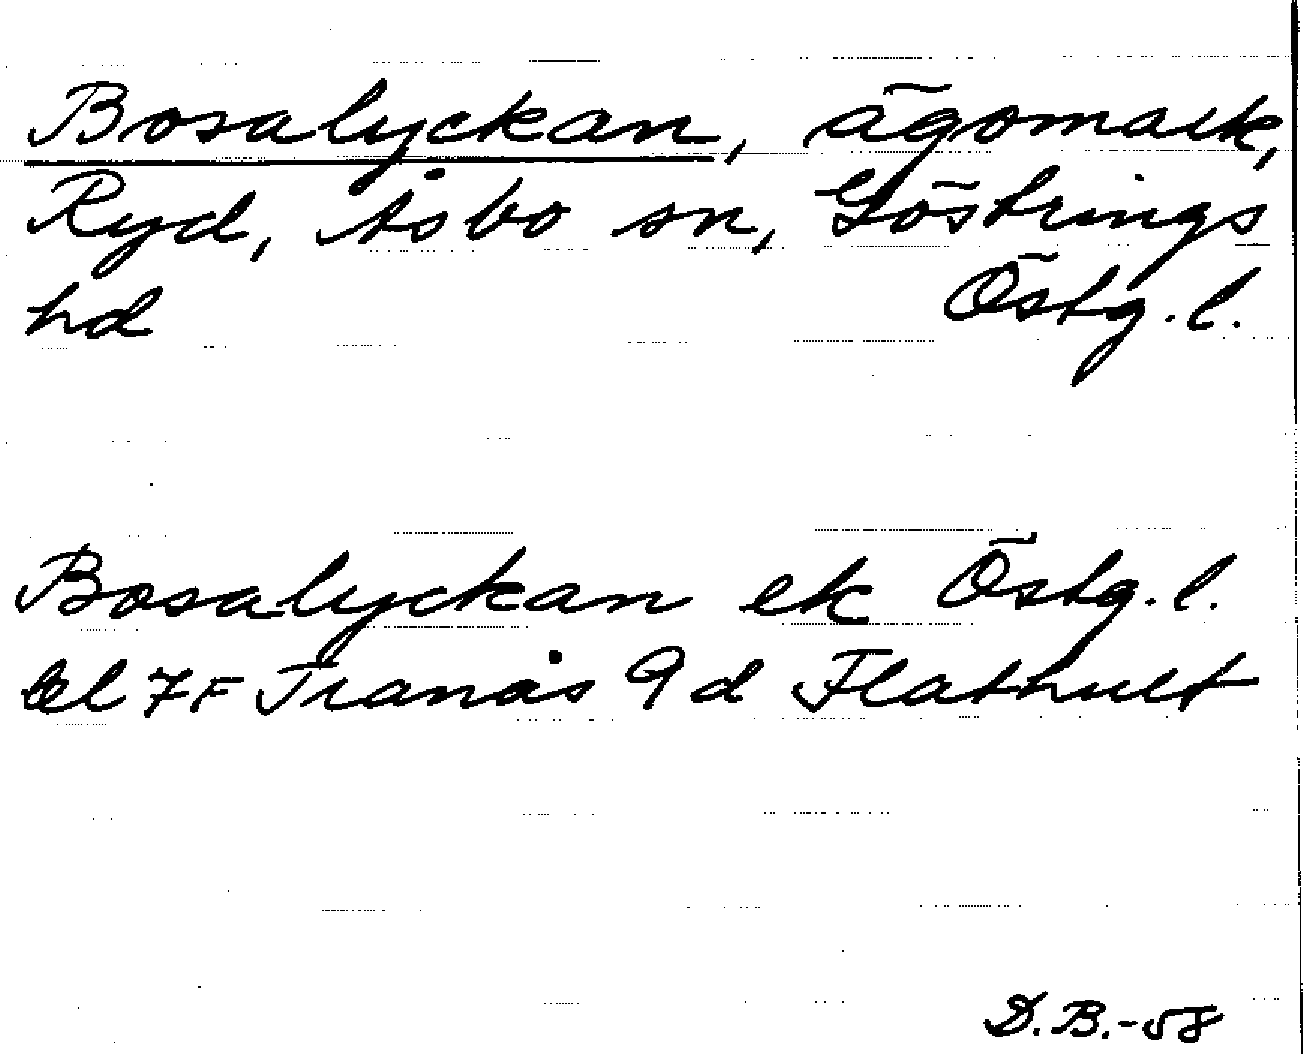 Bosalyckan, ägomark,
Ryd, Åsbo sn, Göstrings
hd Östg. l.
Bosalyckan ek Östg. l.
bl 7F Tranås 9d Flathult
D. B. -58